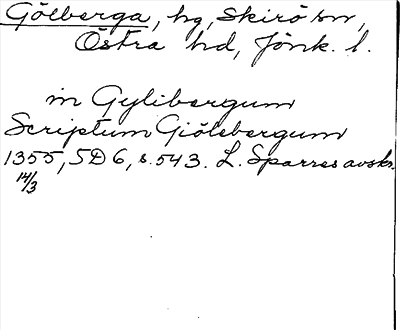 Gölberga, hg, Skirö sn,
Östra hd, Jönk. l.
in Gylibergum
Scriptum Giölebergum
1355, SD 6, s. 543. L. Sparres avskr.
14/3